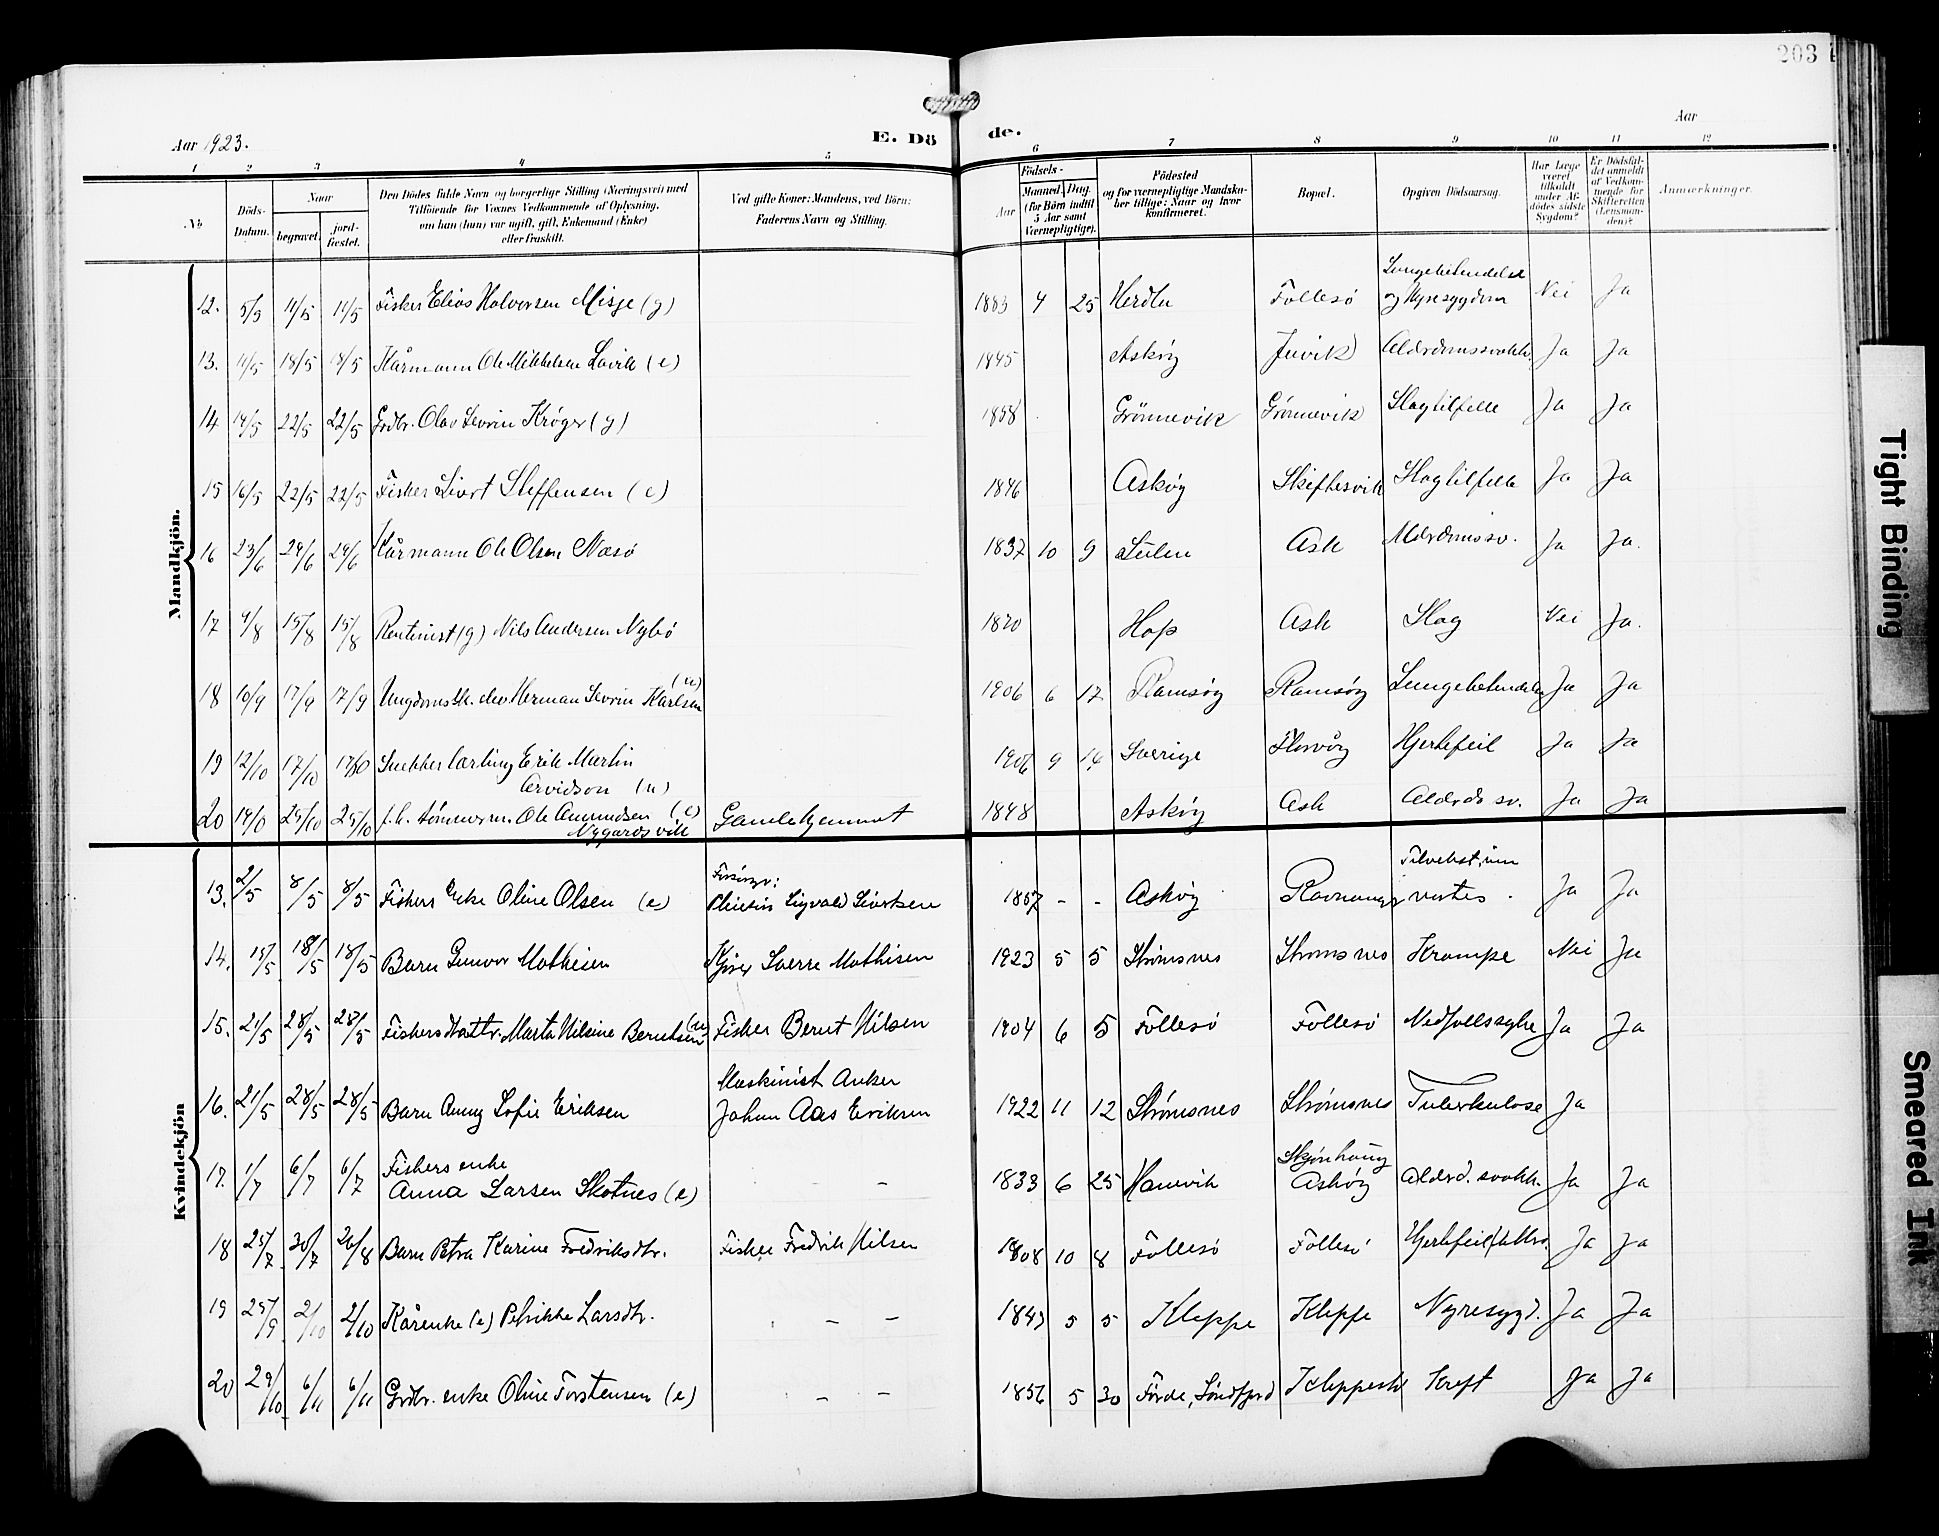 203
Aar 1923.
E. Dö
de.
Aar
1 2 3 4 5 6 7 8 9 10 11 12
No
Döds-Datum.
Naar
begravet. jord-fæstet.
Den Dödes fulde Navn og borgerlige Stilling (Næringsvei) med
Tilföiende for Voxnes Vedkommende af Oplysning,
om han (hun) var ugift, gift, Enkemand (Enke)
eller fraskilt.
Ved gifte Koner: Mandens, ved Börn:
Faderens Navn og Stilling.
Födsels-
Aar
Maaned. Dag.
(for Börn indtil
5 Aar samt
Værnepligtige).
Födested
og for værnepligtige Mandska-
ber tillige: Naar og hvor
konfirmeret.
Bopæl.
Opgiven Dödsaarsag.
Har Læge
været
tilkaldt
under Af-
dödes sidste
Sygdom?
Er Dödsfal-
det anmeldt
af Vedkom-
mende for
Skifteretten
(Lensman-
den)?
Anmærkninger.
Mandkjön.
12. 5/5 11/5 11/5 Fisker Elias Halvorsen Misje (g) 1883 4 25 Herdla Follesö Lungebetendelse og Nyresygdom Nei Ja
13. 11/5 18/5 18/5 Kårmann Ole Mikkelsen Lavik (e) 1845 Askøy Juvik Alderdomssvakh. Ja Ja
14 14/5 22/5 22/5 Grdbr. Olai Sevrin Krøger (g) 1858 Grönnevik Grönnevik Slagtilfelle Ja Ja
15 16/5 22/5 22/5 Fisker Sivert Steffensen (e) 1846 Askøy Skiftesvik Slagtilfelle Ja Ja
16 23/6 29/6 29/6 Kårmann Ole Olsen Næsö 1837 10 9 Sulen Ask Alderdomssv. Ja Ja.
17 9/8 15/8 15/8 Rentenist (g) Nils Andersen Nybö 1820 Hop Ask Slag Nei Ja.
18 10/9 17/9 17/9 Ungdomssk. elev Herman Sevrin Karlsen (u) 1906 6 17 Ramsøy Ramsøy Lungebetendelse Ja Ja
19 12/10 17/10 17/10 Snekkerlærling Erik Martin
Arvidson (u) 1906 9 14 Sverige Florvåg Hjertefeil Ja Ja
20 19/10 25/10 25/10 f.h. tömmerm. Ole Amundsen (e)
Nygardsvik Gamlehjemmet 1848 Askøy Ask Alderds sv. Ja Ja
Kvindekjön
13. 2/5 8/5 8/5 Fiskers Enke Oline Olsen (e) Forsörger:
Sigvald Sivertsen 1857 - - Askøy Ravnanger Tilvekst, inn
vortes. Ja Ja
14. 15/5 18/5 18/5 Barn Gunvor Mathisen Kjörer Sverre Mathisen 1923 5 5 Strömsnes Strömsnes Krampe Nei Ja
15. 21/5 28/5 28/5 Fiskers Dattr. Marta Nilsine Berntsen (u) Fisker Bernt Nilsen 1904 6 5 Follesö Follesö Nedfallssyke Ja Ja
16. 21/5 28/5 28/5 Barn Anny Sofie Eriksen Maskinist Anker
Johan Aas Eriksen 1922 11 12 Strömsnes Strömsnes Tuberkulose Ja
17. 1/7 6/7 6/7 Fiskers enke
Anna Larsen Skotnes (e) - 1833 6 25 Hanevik Skjönhaug
Askøy Alderd. svakh. Ja Ja
18 25/7 30/7 26/8 Barn Petra Karine Fredriksdtr. Fisker Fredrik Nilsen 1908 10 8 Follesö Follesö Hjertefeil Ja Ja
19 25/9 2/10 2/10 Kårenke (e) Petrikke Larsdtr. - - 1843 5 5 Kleppe Kleppe Nyresygd. Ja Ja
20 29/10 6/11 6/11 Grdbr. enke Oline Torstensen (e) - - 1856 5 30 Förde, Söndfjord Kleppestö Kreft Ja Ja
Tight Binding
Smeared Ink